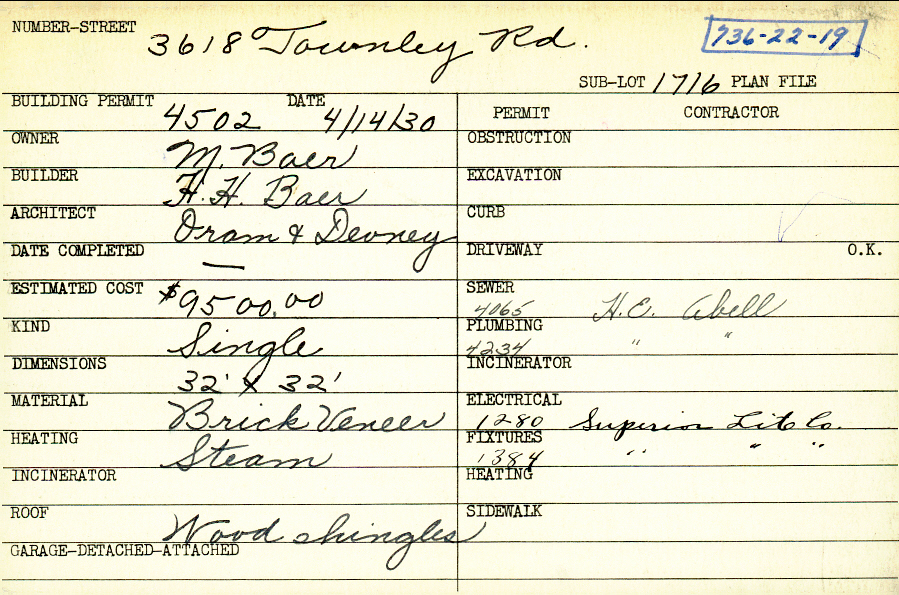 NUMBER-STREET 3618 Townley Rd. 736-22-19
SUB-LOT 1716 PLAN FILE
BUILDING PERMIT 4502 DATE 4/14/30
PERMIT CONTRACTOR
OWNER M. Baer
OBSTRUCTION
BUILDER H. H. Baer
EXCAVATION
ARCHITECT Oram & Devney
CURB
DATE COMPLETED —
DRIVEWAY O.K.
ESTIMATED COST $9500.00
SEWER 4065 H.E. Abell
KIND Single
PLUMBING 4234 " "
DIMENSIONS 32' x 32'
INCINERATOR
MATERIAL Brick Veneer
ELECTRICAL 1280 Superior Lit Co.
HEATING Steam
FIXTURES 1384 " " "
INCINERATOR
HEATING
ROOF Wood shingles
SIDEWALK
GARAGE-DETACHED-ATTACHED